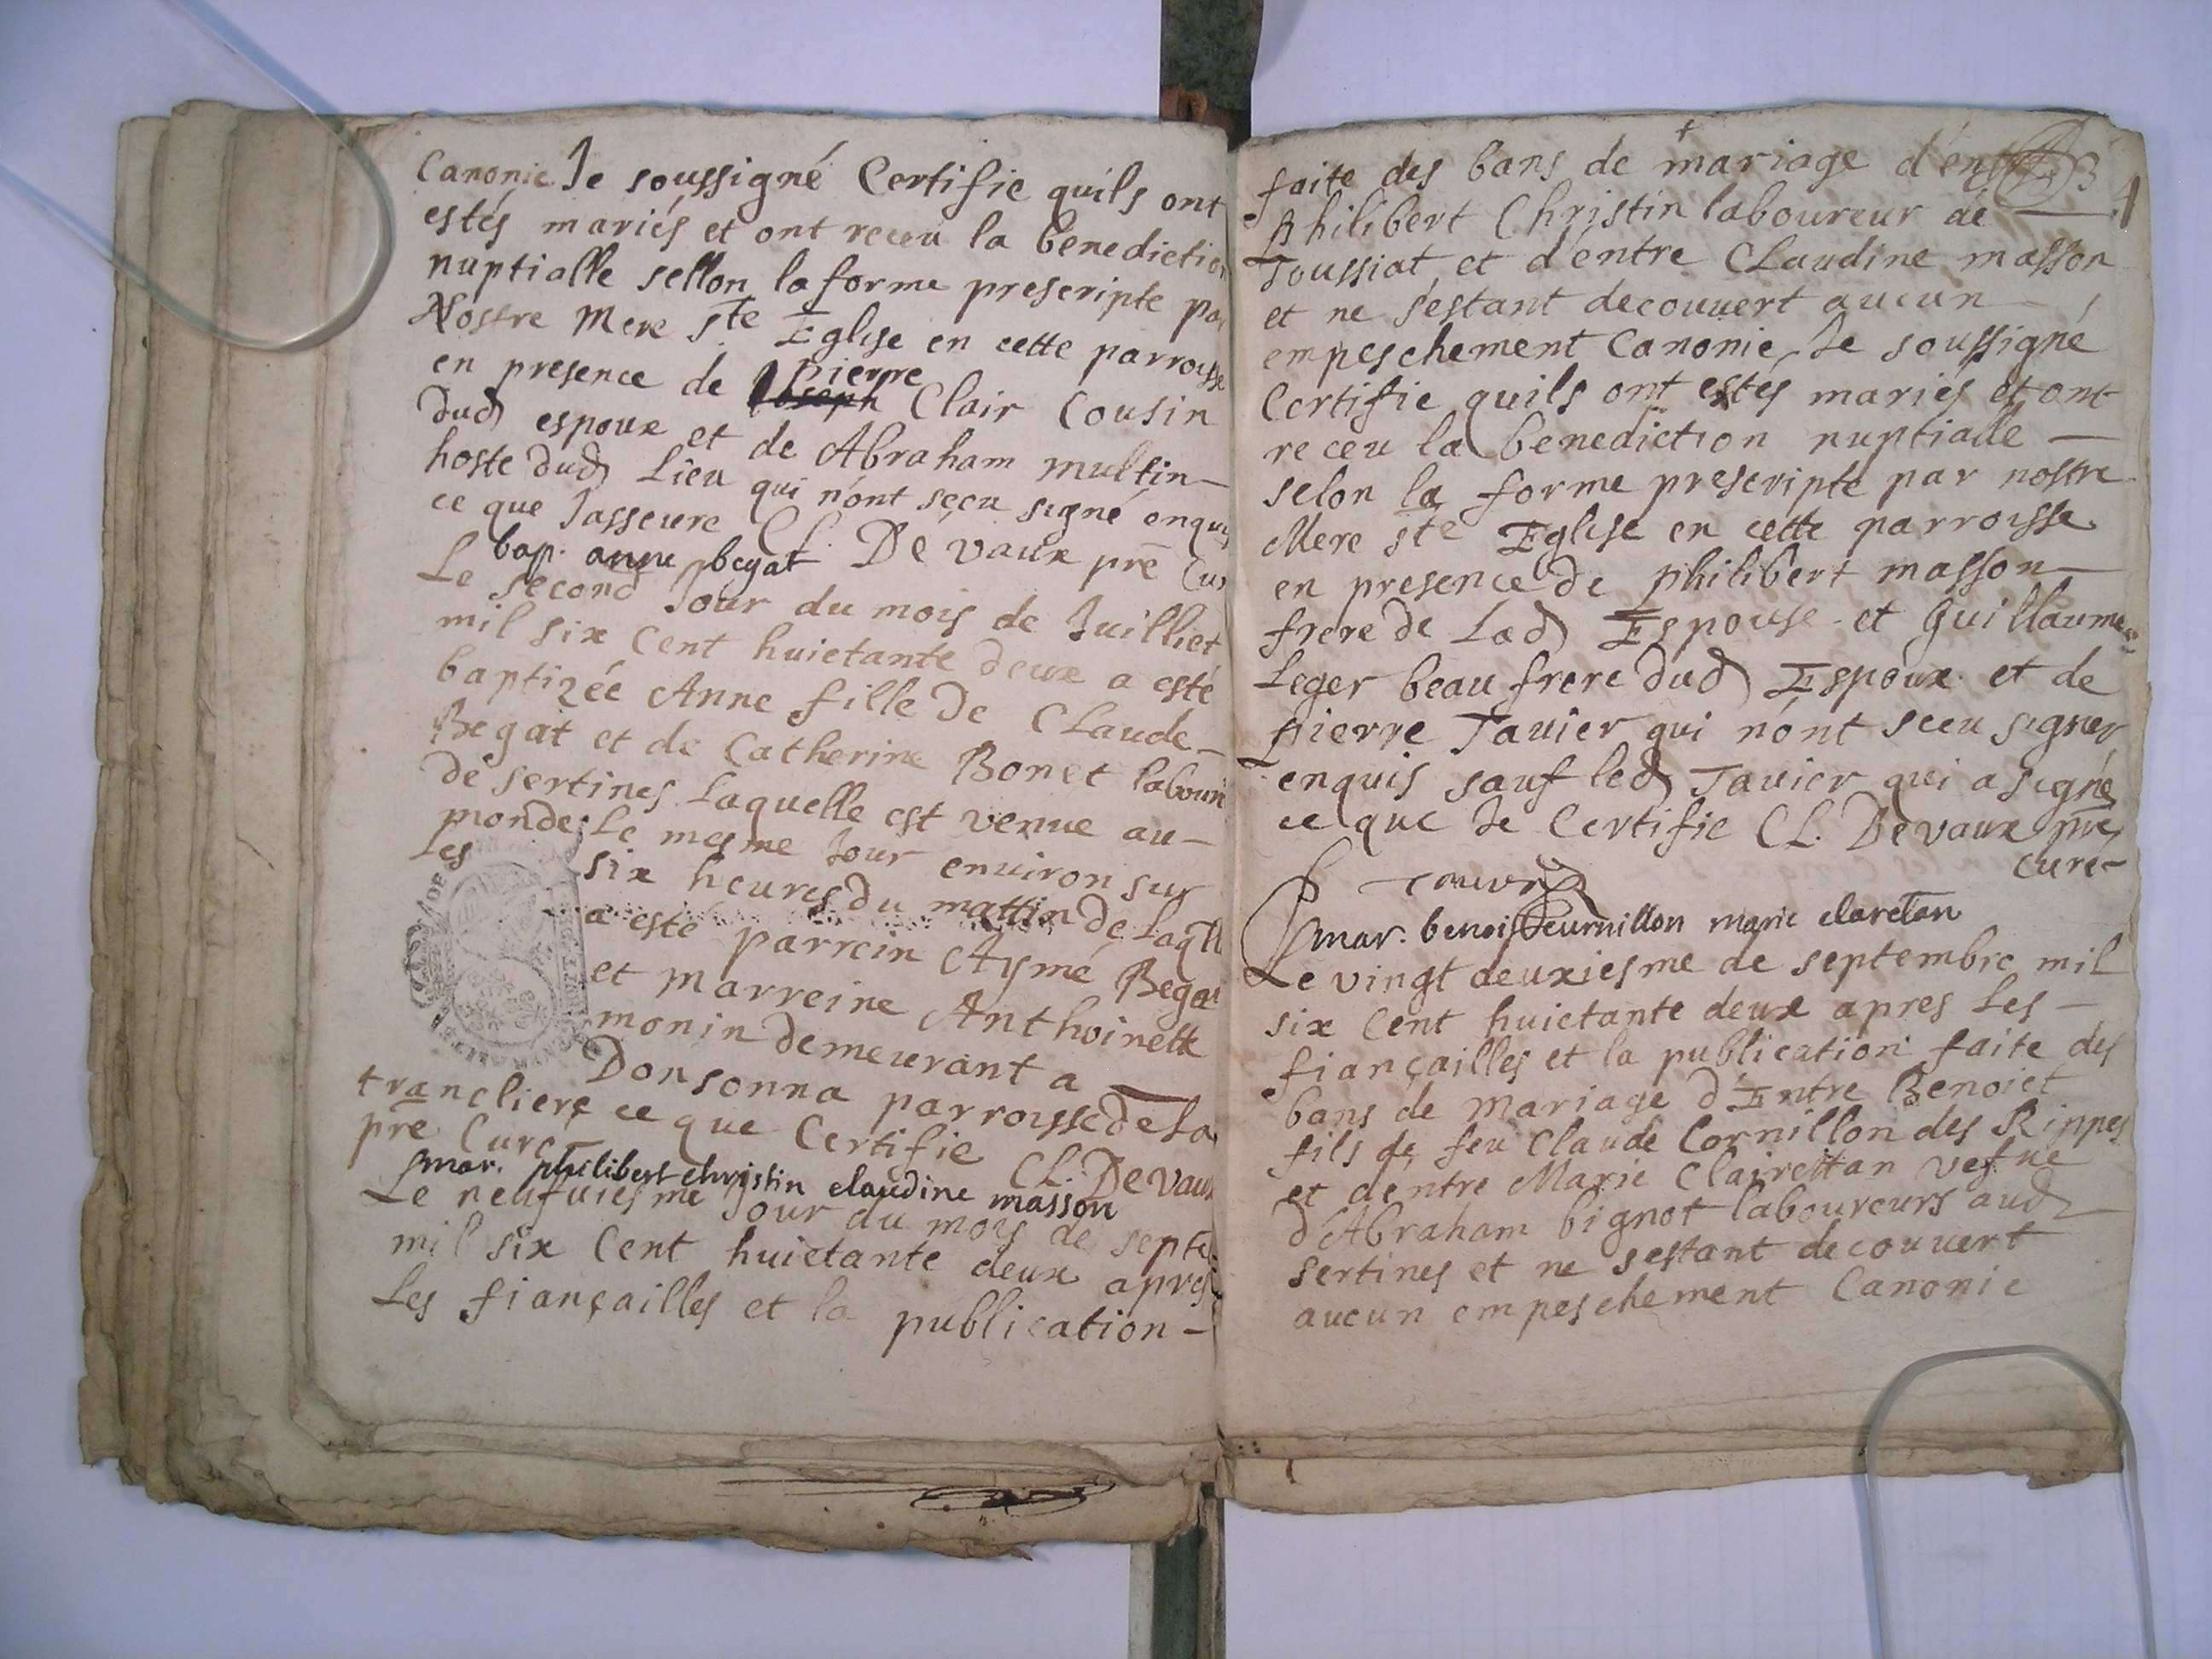 Canonic Je soussigné Certifie quils ont
estés mariés et ont receu la benediction
nuptialle sellon la forme prescripte par
Nostre Mere Ste Eglise en cette parroisse
en presence de Pierre Clair Cousin
dud espoux et de Abraham multin
hoste dud Lieu qui n'ont sçeu signé enquis
ce que Jasseure CL. De vaux pre Cur
bap. anne begat
Le second Jour du mois de Juilliet
mil six Cent huictante deux a esté
baptizée Anne fille de CLaude
Begat et de Catherine Bonet labour
de sertines Laquelle est venue au
monde Le mesme Jour environ sur
Les six heures du mattin de Laqll
a esté parrein Aymé Begat
et Marreine Anthoinette
monin demeurant a
Donsonna parroisse de La
trancliere ce que Certifie CL. De vaux
pre Curé
mar. philibert christin claudine masson
Le neufuiesme Jour du mois de septe
mil six Cent huictante deux apres
Les fiançailles et la publication
faite des bans de mariage d'entre
Philibert Christin laboureur de
Toussiat et d'entre CLaudine masson
et ne s'estant decouvert aucun
empeschement Canonic Je soussigné
Certifie quils ont estés mariés et ont
receu la benediction nuptialle
selon la forme prescripte par nostre
Mere ste Eglise en cette parroisse
en presence de philibert masson
frere de Lad Espouse et Guillaume
Leger beau frere dud Espoux et de
pierre Tavier qui n'ont sceu signer
enquis sauf led Tavier qui a signé
ce que Je Certifie CL. De vaux pre
Curé
mar. benoist cournillon marie claretan
Le vingt deuxiesme de septembre mil
six Cent huictante deux apres Les
fiançailles et la publication faite des
bans de Mariage d'Entre Benoict
fils de feu Claude Cornillon des Rippes
et d'entre Marie Clairettan vefue
d'Abraham bignot laboureurs aud
sertines et ne sestant decouvert
aucun empeschement Canonic